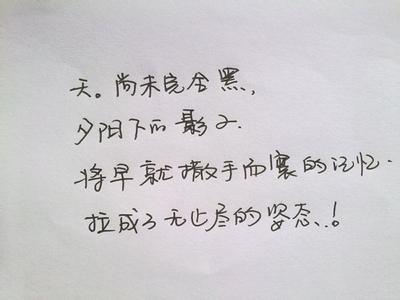 天。尚未完全黑,
夕阳下的影子.
将早就撒手而寰的记忆.
拉成了无止尽的姿态、!